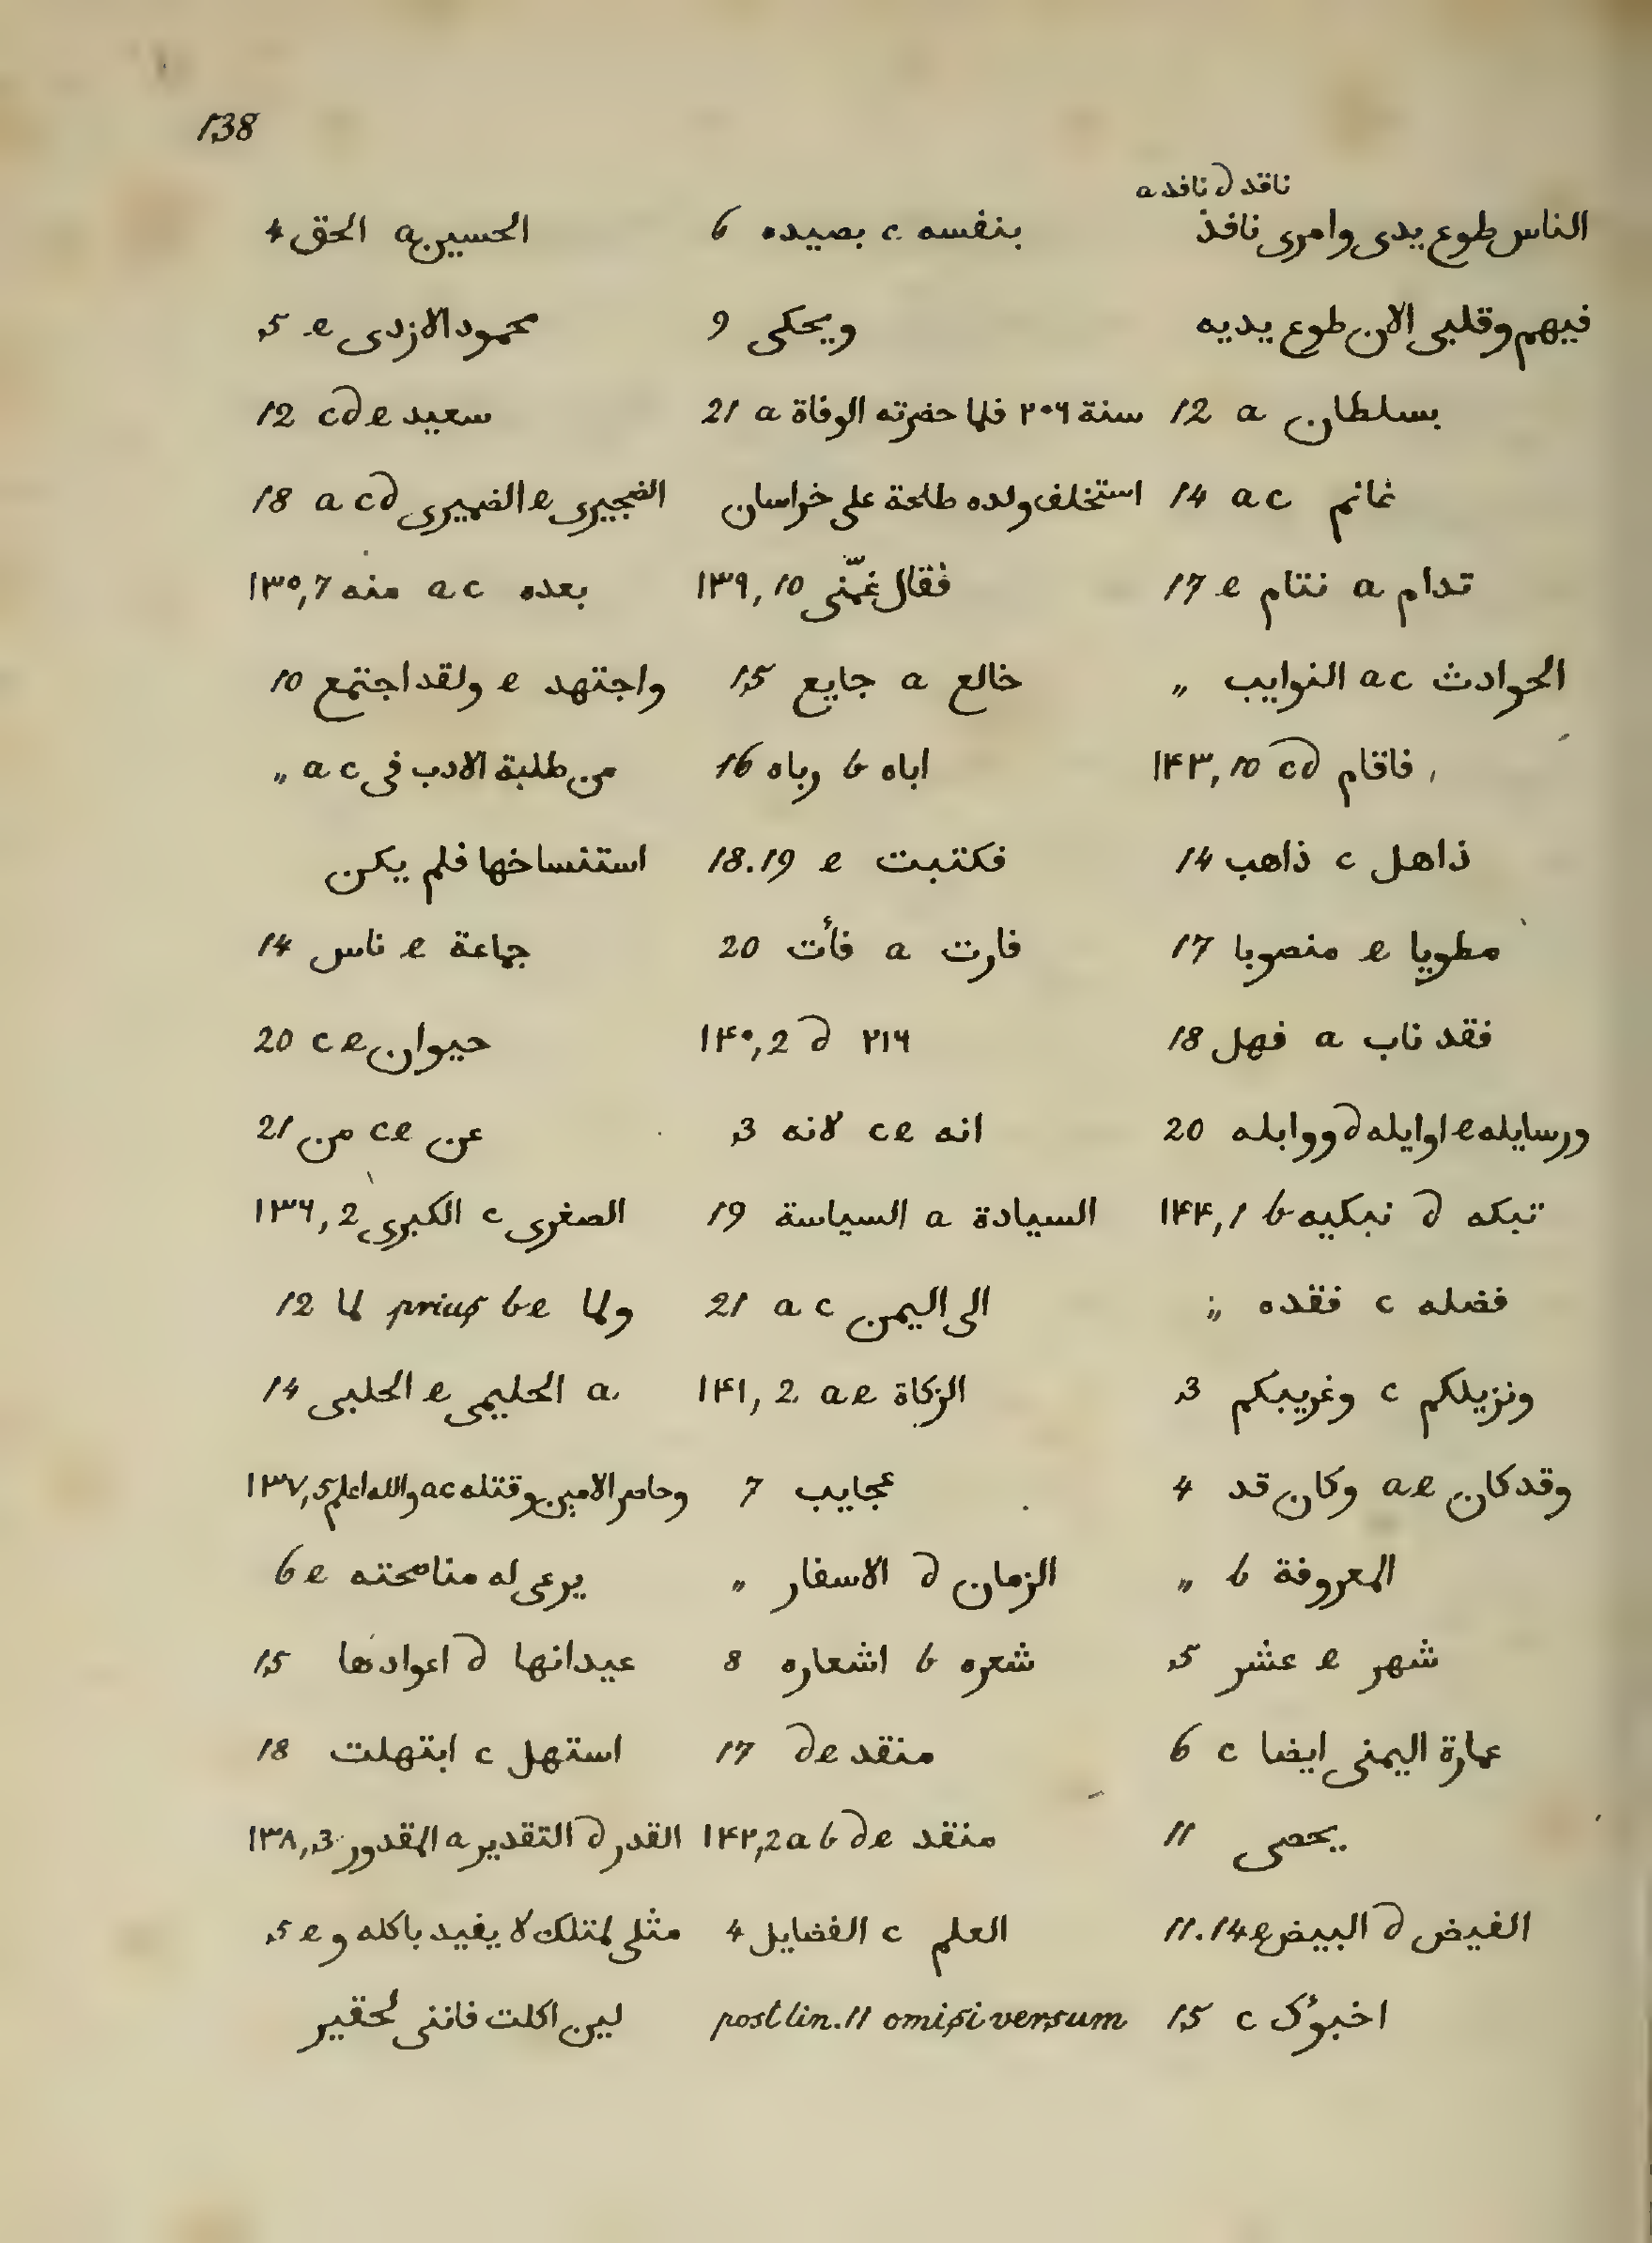 138
الحسين a الحق 4
محمود الازدى e 5
سعيد c d e 12
الضجيرى e الضميرى a c d 18
بعده a c منه ١٣٥,7
واجتهد e ولقد اجتمع 10
من طلبة الادب فى a c „
استنساخها فلم يكن
جماعة e ناس 14
حيوان c e 20
عن c e من 21
الصغرى c الكبرى ١٣٦,2
ولما b e prius لما 12
a الحليمى e الحلبى 14
وحاصر الامين وقتله a c والله اعلم ١٣٧,5
يرعى له مناصحته e 6
عيدانها d اعوادها 15
استهل c ابتهلت 18
القدر d التقدير a المقدور ١٣٨,3
مثلى لمتلك لا يفيد باكله و e 5
لين اكلت فاننى لحقير
بنفسه c بصيده 6
ويحكى 9
سنة ٢٠٦ فلما حضرته الوفاة a 21
استخلف ولده طلحة على خراسان
فقال غمّنى ١٣٩,10
خالع a جايع 15
اباه b رباه 16
فكتبت e 18.19
فارت a فأت 20
٢١٦ d ١٤٠,2
انه c e لانه 3
السيادة a السياسة 19
الى اليمن a c 21
الزكاة a e ١٤١,2
عجايب 7
الزمان d الاسفار „
شعره b اشعاره 8
منقد d e 17
منقد a b d e ١٤٢,2
العلم c الفضايل 4
post lin. 11 omisi versum
ناقد d نافد a
الناس طوع يدى وامرى نافذ
فيهم وقلبى الان طوع يديه
بسلطان a 12
غانم a c 14
تدام a نتام e 17
الحوادث a c النوايب „
فاقام c d ١٤٣,10
ذاهل c ذاهب 14
مطويا e منصوبا 17
فقد ناب a فهل 18
ورسايله e اوايله d ووابله 20
تبكه d نبكيه b ١٤٤,1
فضله c فقده „
ونزيلكم c وغريبكم 3
وقد كان a e وكان قد 4
المعروفة b „
شهر e عشر 5
عمارة اليمنى ايضا c 6
يحصى 11
الفيض d البيض e 11.14
اخبوُك c 15